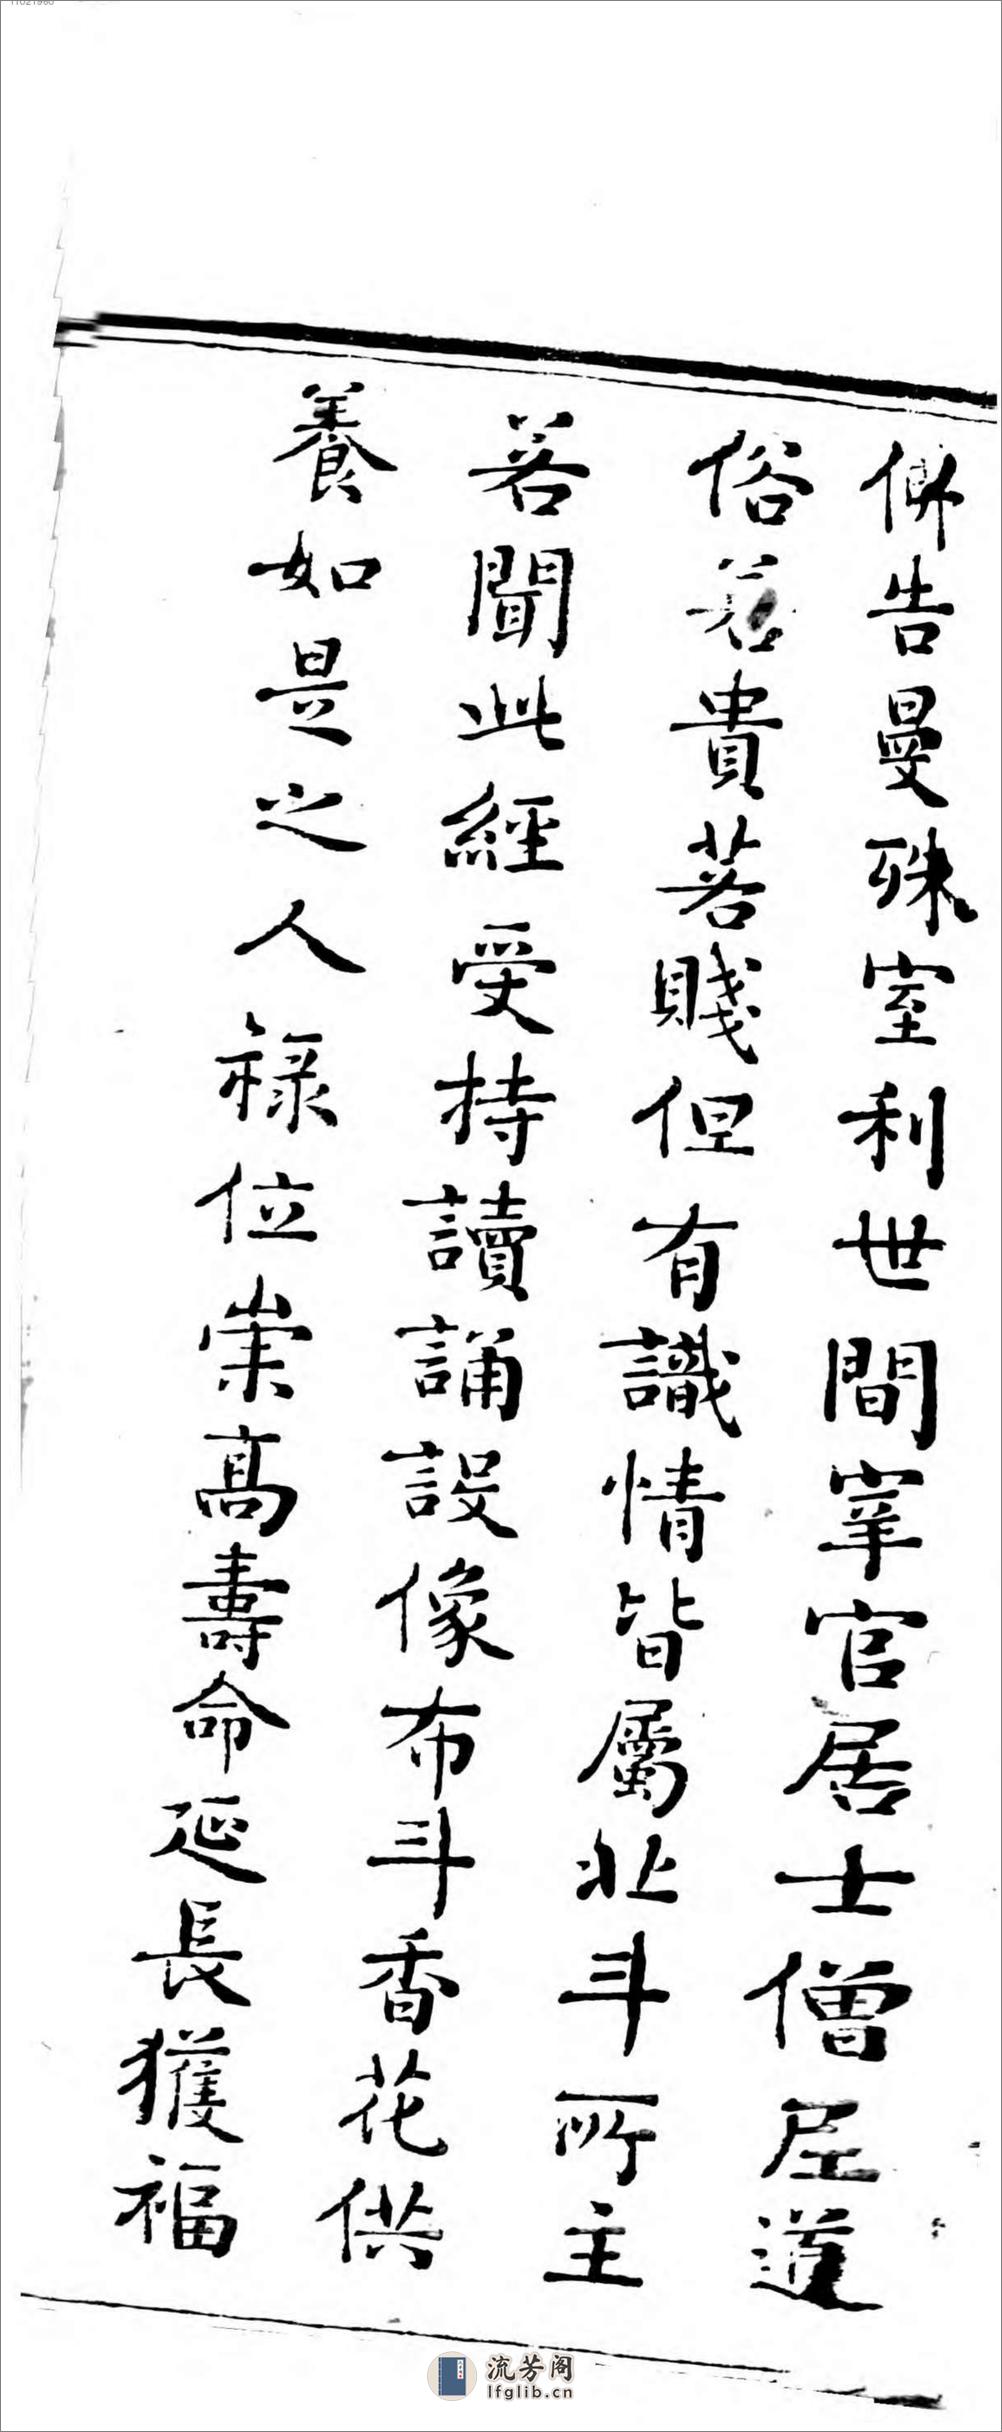 佛告曼殊室利世間宰官居士僧尼道
俗若貴若賤但有識情皆屬北斗所主
若聞此經受持讀誦設像布斗香花供
養如是之人祿位崇高壽命延長獲福
流芳阁
lfglib.cn